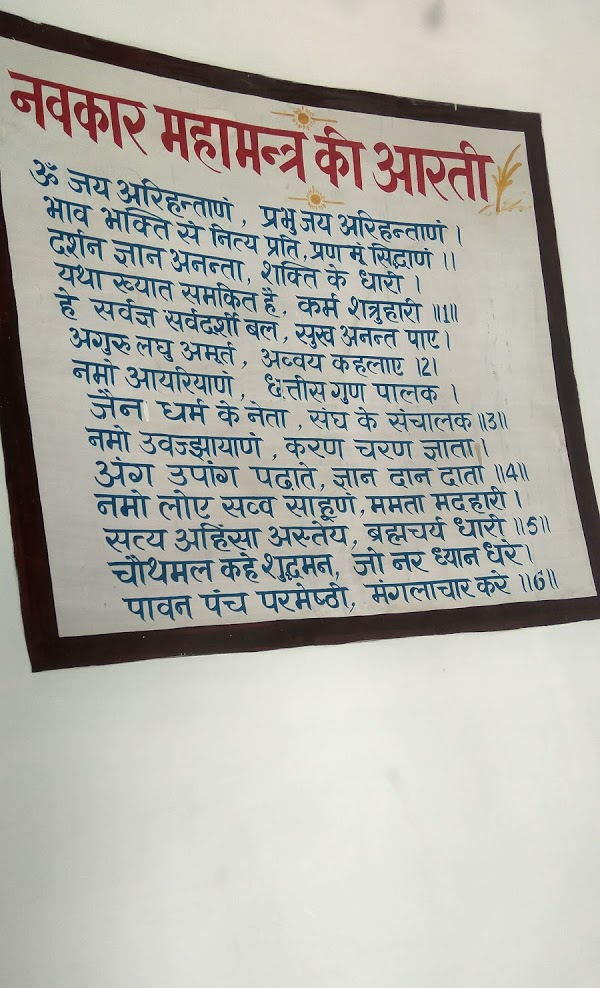 नवकार महामन्त्र की आरती
ॐ जय अरिहन्ताणं, प्रभु जय अरिहन्ताणं ।
भाव भक्ति से नित्य प्रति, प्रण मं सिद्धाणं ।।
दर्शन ज्ञान अनन्ता, शक्ति के धारी ।
यथा ख्यात समकित है, कर्म शत्रुहारी ॥1॥
हे सर्वज्ञ सर्वदर्शी बल, सुख अनन्त पाए।
अगुरु लघु अमर्त, अव्वय कहलाए ।2।
नमो आयरियाणं, छत्तीस गुण पालक ।
जैन धर्म के नेता, संघ के संचालक ॥3॥
नमो उवज्झायाणं, करण चरण ज्ञाता।
अंग उपांग पढाते, ज्ञान दान दाता ॥4॥
नमो लोए सव्व साहूणं, ममता मदहारी ।
सत्य अहिंसा अस्तेय, ब्रह्मचर्य धारी ॥5॥
चौथमल कहे शुद्धमन, जो नर ध्यान धरे।
पावन पंच परमेष्ठी, मंगलाचार करे ॥6॥